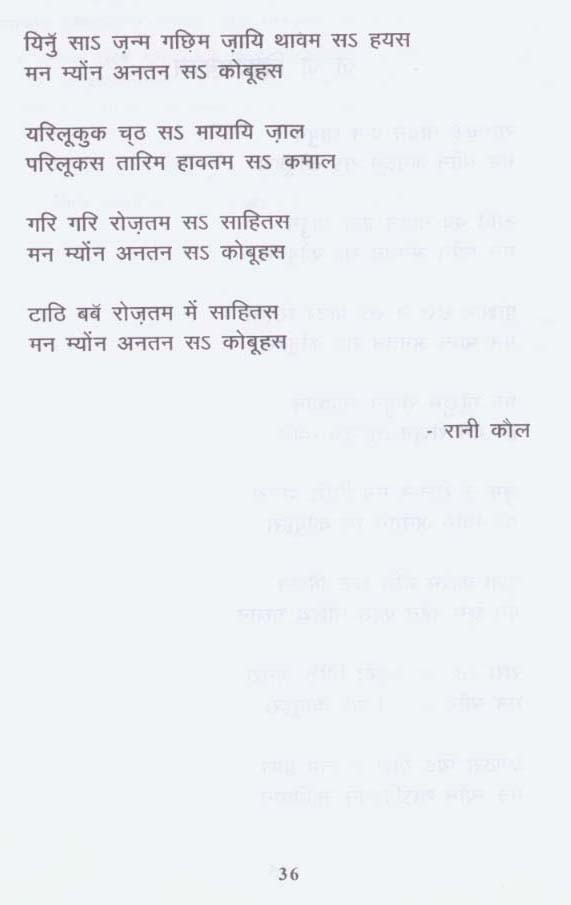 यिनुँ साऽ ज़न्म गछ़िम ज़ायि थावम सऽ हयस
मन म्योंन अनतन सऽ कोबूहस
यरिलूकुक च़्ठ सऽ मायायि ज़ाल
परिलूकस तारिम हावतम सऽ कमाल
गरि गरि रोज़तम सऽ साहितस
मन म्योंन अनतन सऽ कोबूहस
टाठि बबॅ रोज़तम में साहितस
मन म्योंन अनतन सऽ कोबूहस
- रानी कौल
36